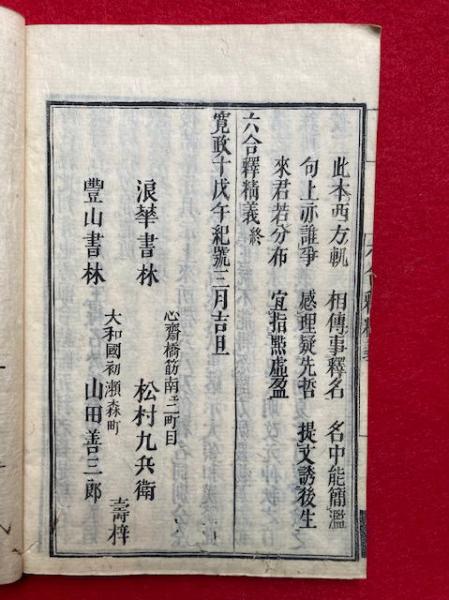 此本西方軌　相傳事釋名　名中能簡濫
句上亦誰爭　惑理疑先哲　提文誘後生
來君若分布　宜指點虛盈
六合釋精義終
寬政十戊午紀號三月吉旦
浪華書林　心齋橋筋南二町目　松村九兵衛
豐山書林　大和國初瀨森町　山田善三郎
壽梓
六合釋精義